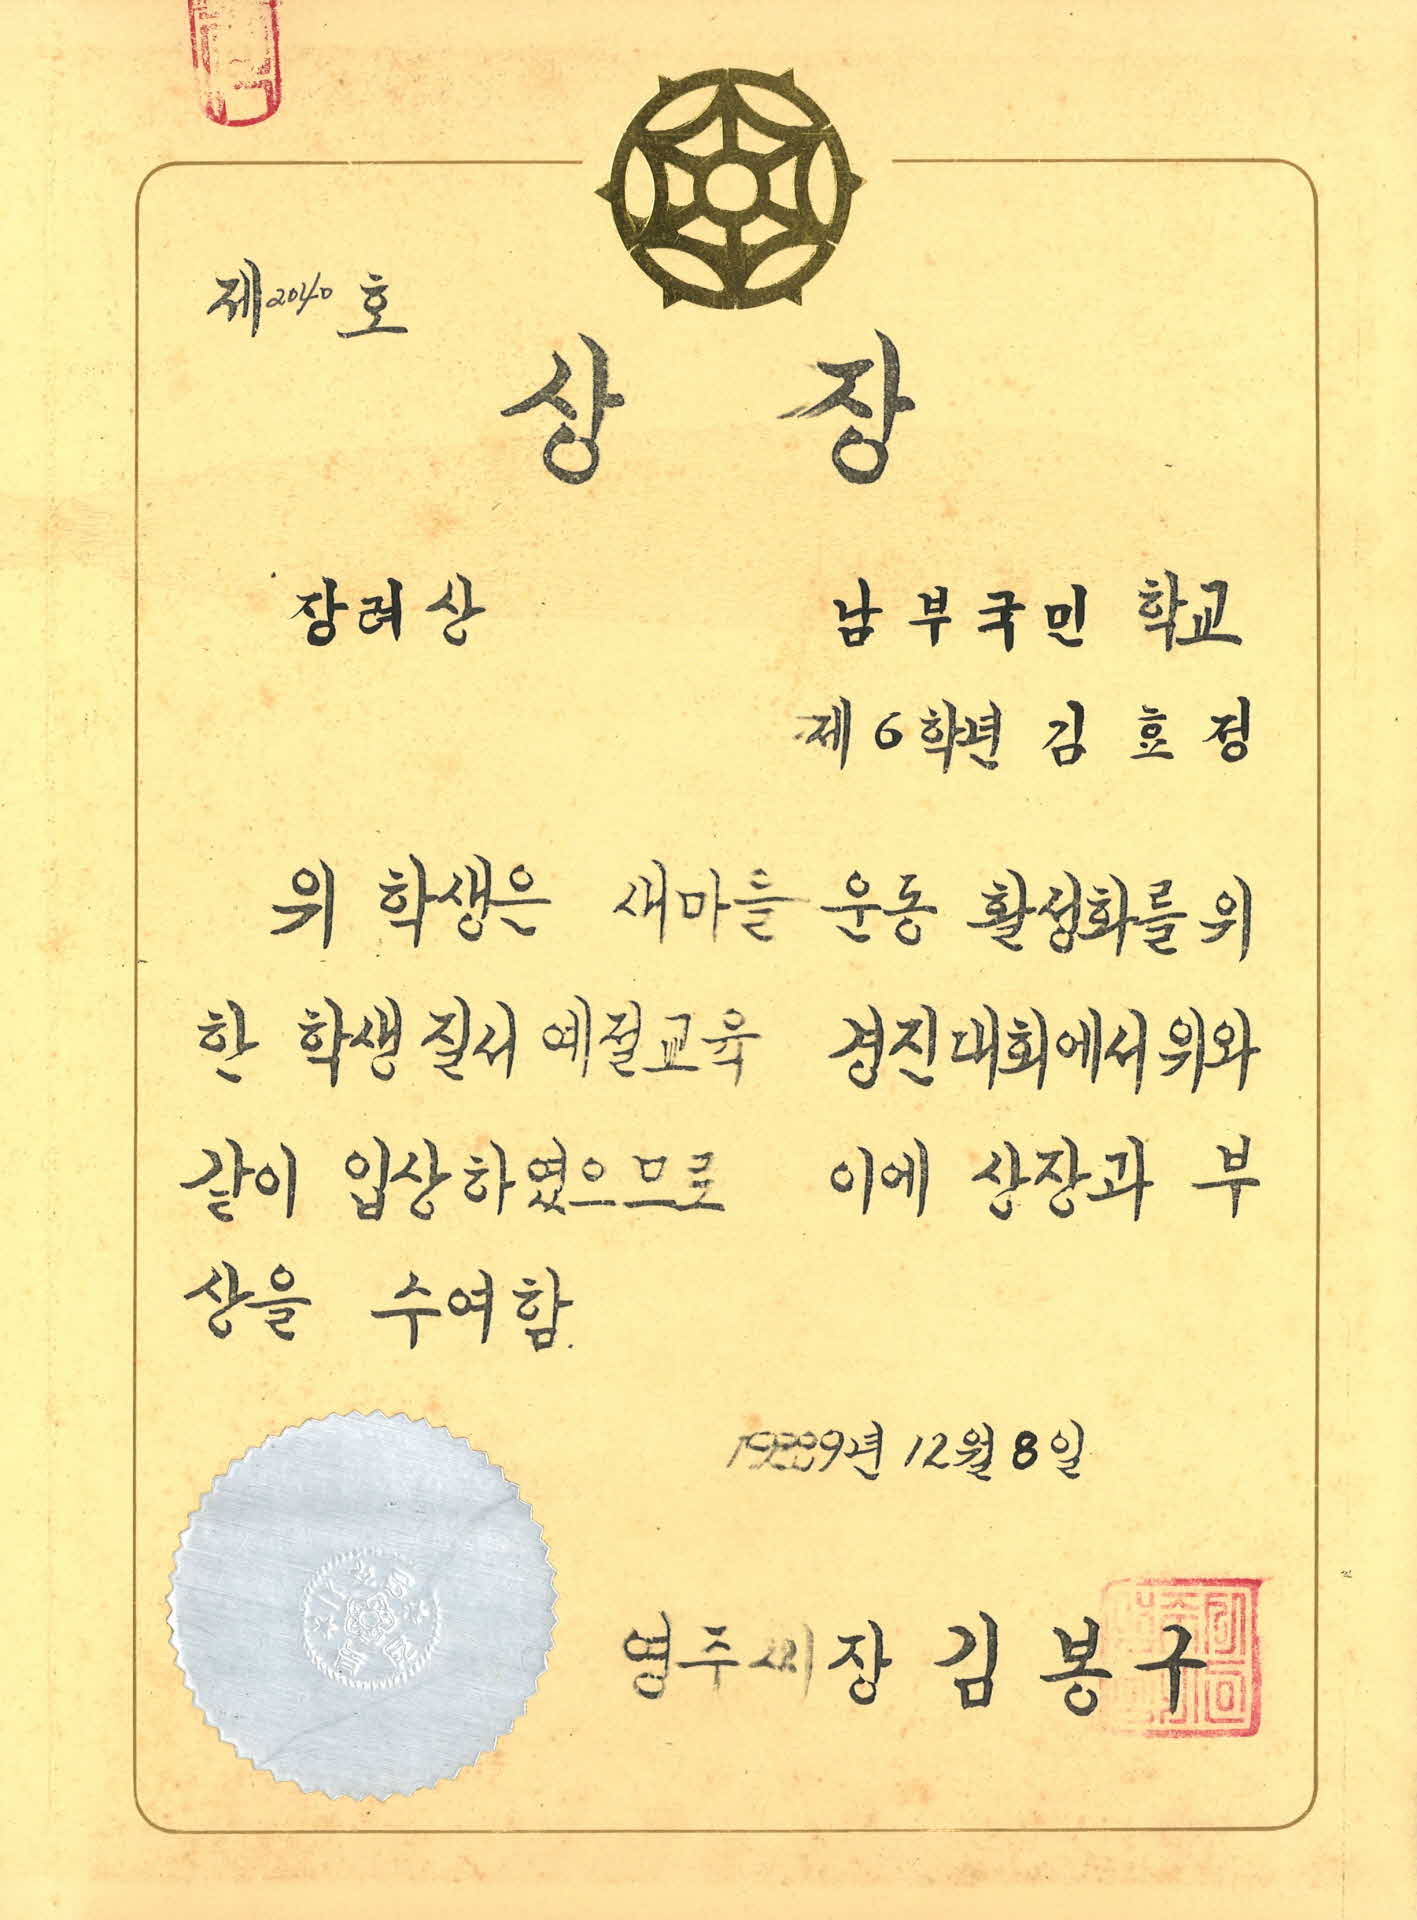 제2040호
상 장
장려상
남부국민 학교
제6학년 김효정
위 학생은 새마을 운동 활성화를 위
한 학생질서 예절교육 경진대회에서 위와
같이 입상하였으므로 이에 상장과 부
상을 수여함.
1989년 12월 8일
영주시장 김봉구